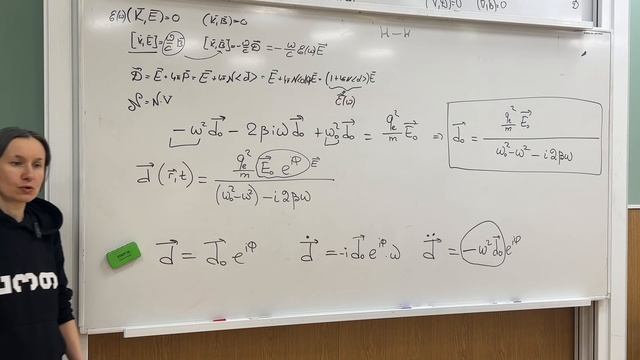 (k⃗, D⃗)=0 (k⃗, B⃗)=0 D
ε(ω) (k⃗, E⃗)=0 (k⃗, B⃗)=0
[k⃗, E⃗]=ω/c B⃗ [k⃗, B⃗]=-ω/c D⃗ = -ω/c ε(ω) E⃗ H-H
D⃗ = E⃗ + 4πP⃗ = E⃗ + 4πN<d⃗> = E⃗ + 4πN<α>E⃗ = (1+4πN<α>)E⃗
ε(ω)
N = N·V
-ω² d⃗₀ - 2βiω d⃗₀ + ω₀² d⃗₀ = qₑ²/m E⃗₀ ⇒ d⃗₀ = (qₑ²/m E⃗₀)/(ω₀²-ω²-i2βω)
d⃗(r⃗,t) = (qₑ²/m E⃗₀ e^{iφ})/((ω₀²-ω²)-i2βω) E⃗
d⃗ = d⃗₀ e^{iφ} ḋ⃗ = -i d⃗₀ e^{iφ}·ω d̈⃗ = -ω² d⃗₀ e^{iφ}